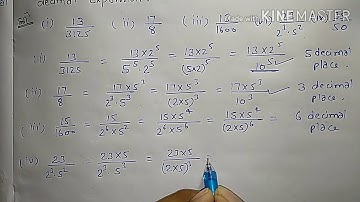 decimal expansion
Sol. (i) 13/3125 (ii) 17/8 (iii) 15/1600 (iv) 23/2³·5² 50
(i) 13/3125 = 13×2⁵/5⁵·2⁵ = 13×2⁵/(5×2)⁵ = 13×2⁵/10⁵ 5 decimal place.
(ii) 17/8 = 17×5³/2³·5³ = 17×5³/(2×5)³ = 17×5³/10³ 3 decimal place.
(iii) 15/1600 = 15/2⁶×5² = 15×5⁴/2⁶×5⁶ = 15×5⁴/(2×5)⁶ = 6 decimal place.
(iv) 23/2³·5² = 23×5/2³·5³ = 23×5/(2×5)³
MADE WITH
KINEMASTER